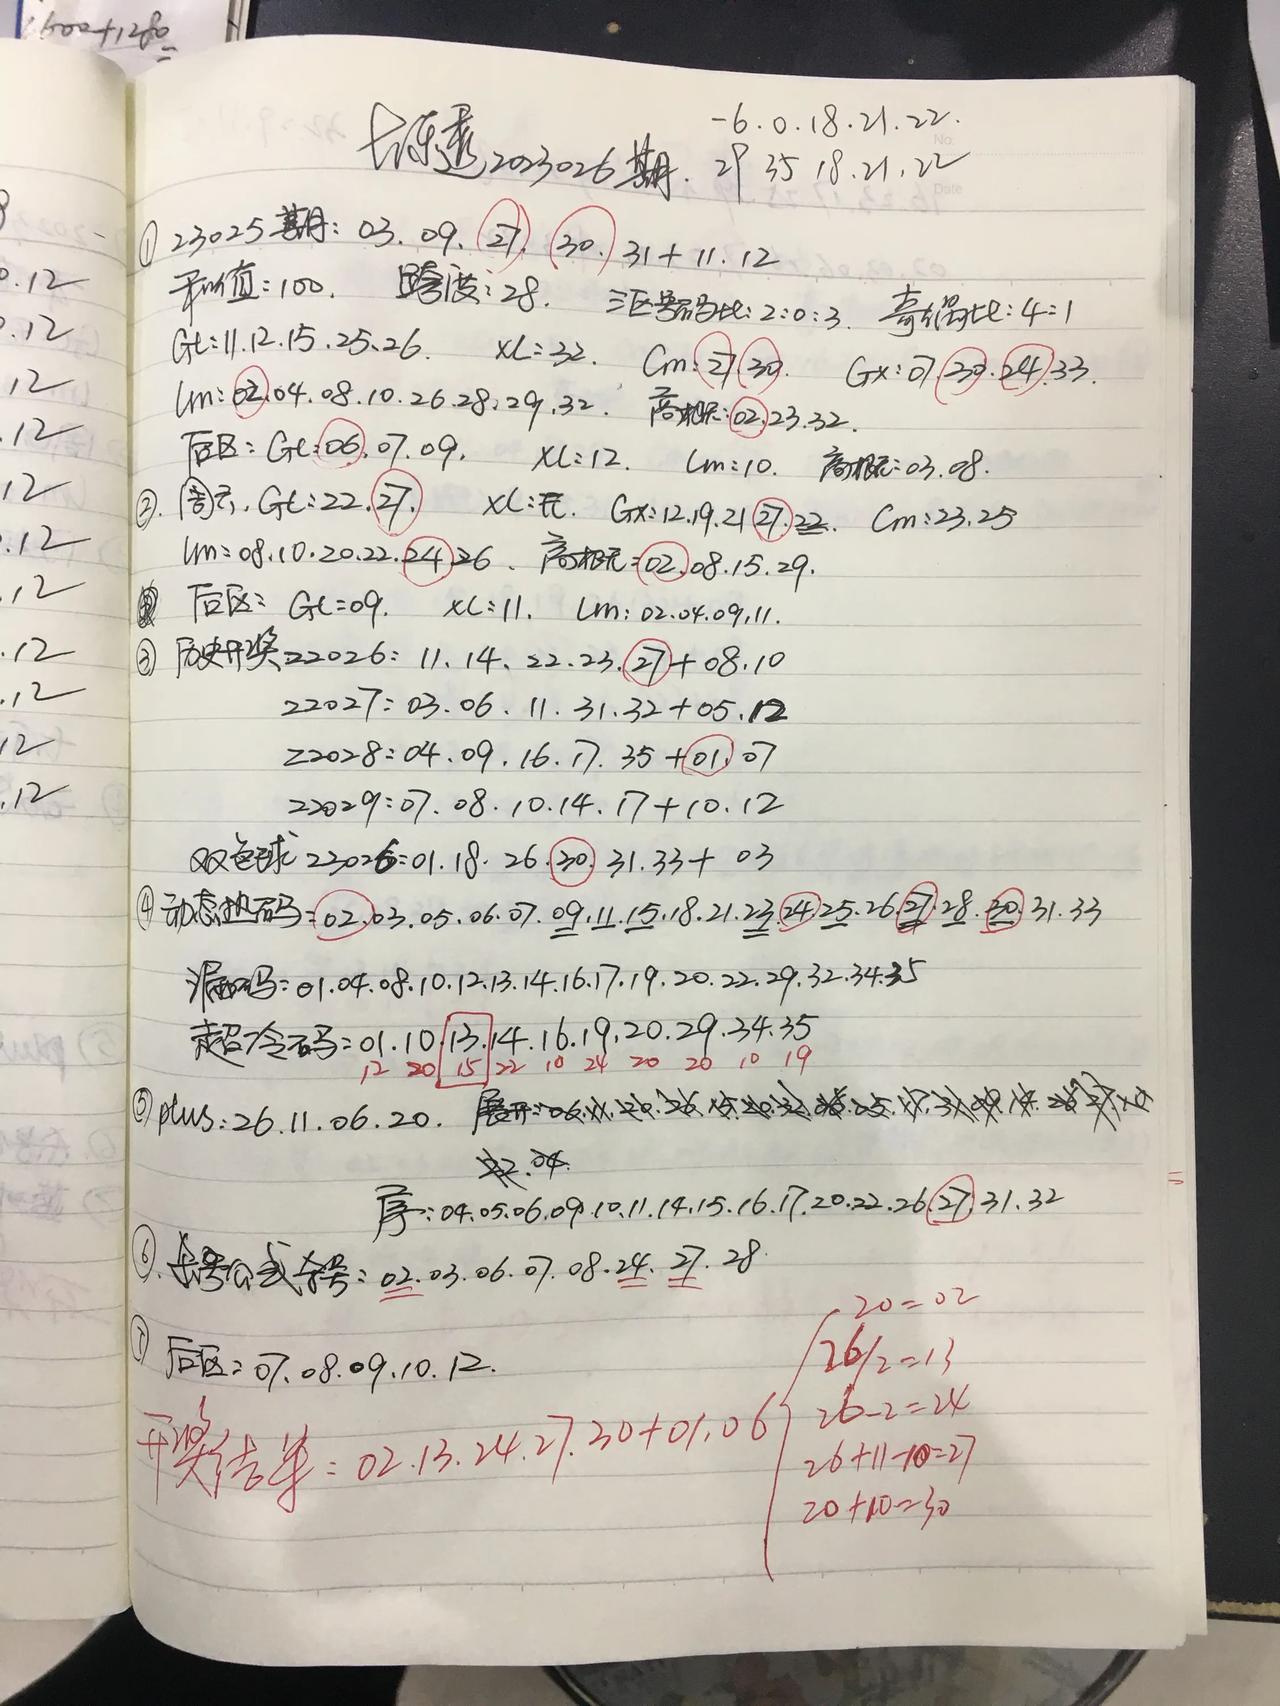 1600+1280
=
-6.0.18.21.22.
大乐透2023026期. 29 35 18.21.22
No.
Date
① 23025期: 03. 09. 27. 30. 31+11.12
和值:100. 跨度:28. 三区号码比:2:0:3. 奇偶比:4=1
GL:11.12.15.25.26. XL=32. Cm:27.30. Gx:07.30.24.33.
Lm:02.04.08.10.26.28.29.32. 高概元:02.23.32.
后区: GL:06.07.09. XL=12. Lm=10. 高概元:03.08.
②. 周六. GL:22.27. XL:无. Gx:12.19.21.27.22. Cm:23.25
Lm=08.10.20.22.24.26. 高概元=02.08.15.29.
后区: GL=09. XL=11. Lm:02.04.09.11.
③ 历史开奖22026: 11.14. 22.23.27+08.10
22027:03.06. 11. 31.32+05.12
22028:04.09.16.17. 35+01.07
22029:07.08.10.14.17+10.12
双色球 23026:01.18. 26.30.31.33+ 03
④ 动态热码=02.03.05.06.07.09.11.15.18.21.23.24.25.26.27.28.30.31.33
漏码=01.04.08.10.12.13.14.16.17.19.20.22.29.32.34.35
超冷码=01.10.13.14.16.19.20.29.34.35
12 20 15 22 10 24 20 20 10 19
⑤ plus:26.11.06.20. 展开:
序:04.05.06.09.10.11.14.15.16.17.20.22.26.27.31.32
⑥. 杀号公式杀号:02.03.06.07.08.24.27.28
⑦ 后区=07.08.09.10.12.
开奖结果:02.13.24.27.30+01.06
20=02
26/2=13
26-2=24
26+11-10=27
20+10=30
0.12
0.12
.12
.12
.12
.12
.12
.12
.12
.12
.12